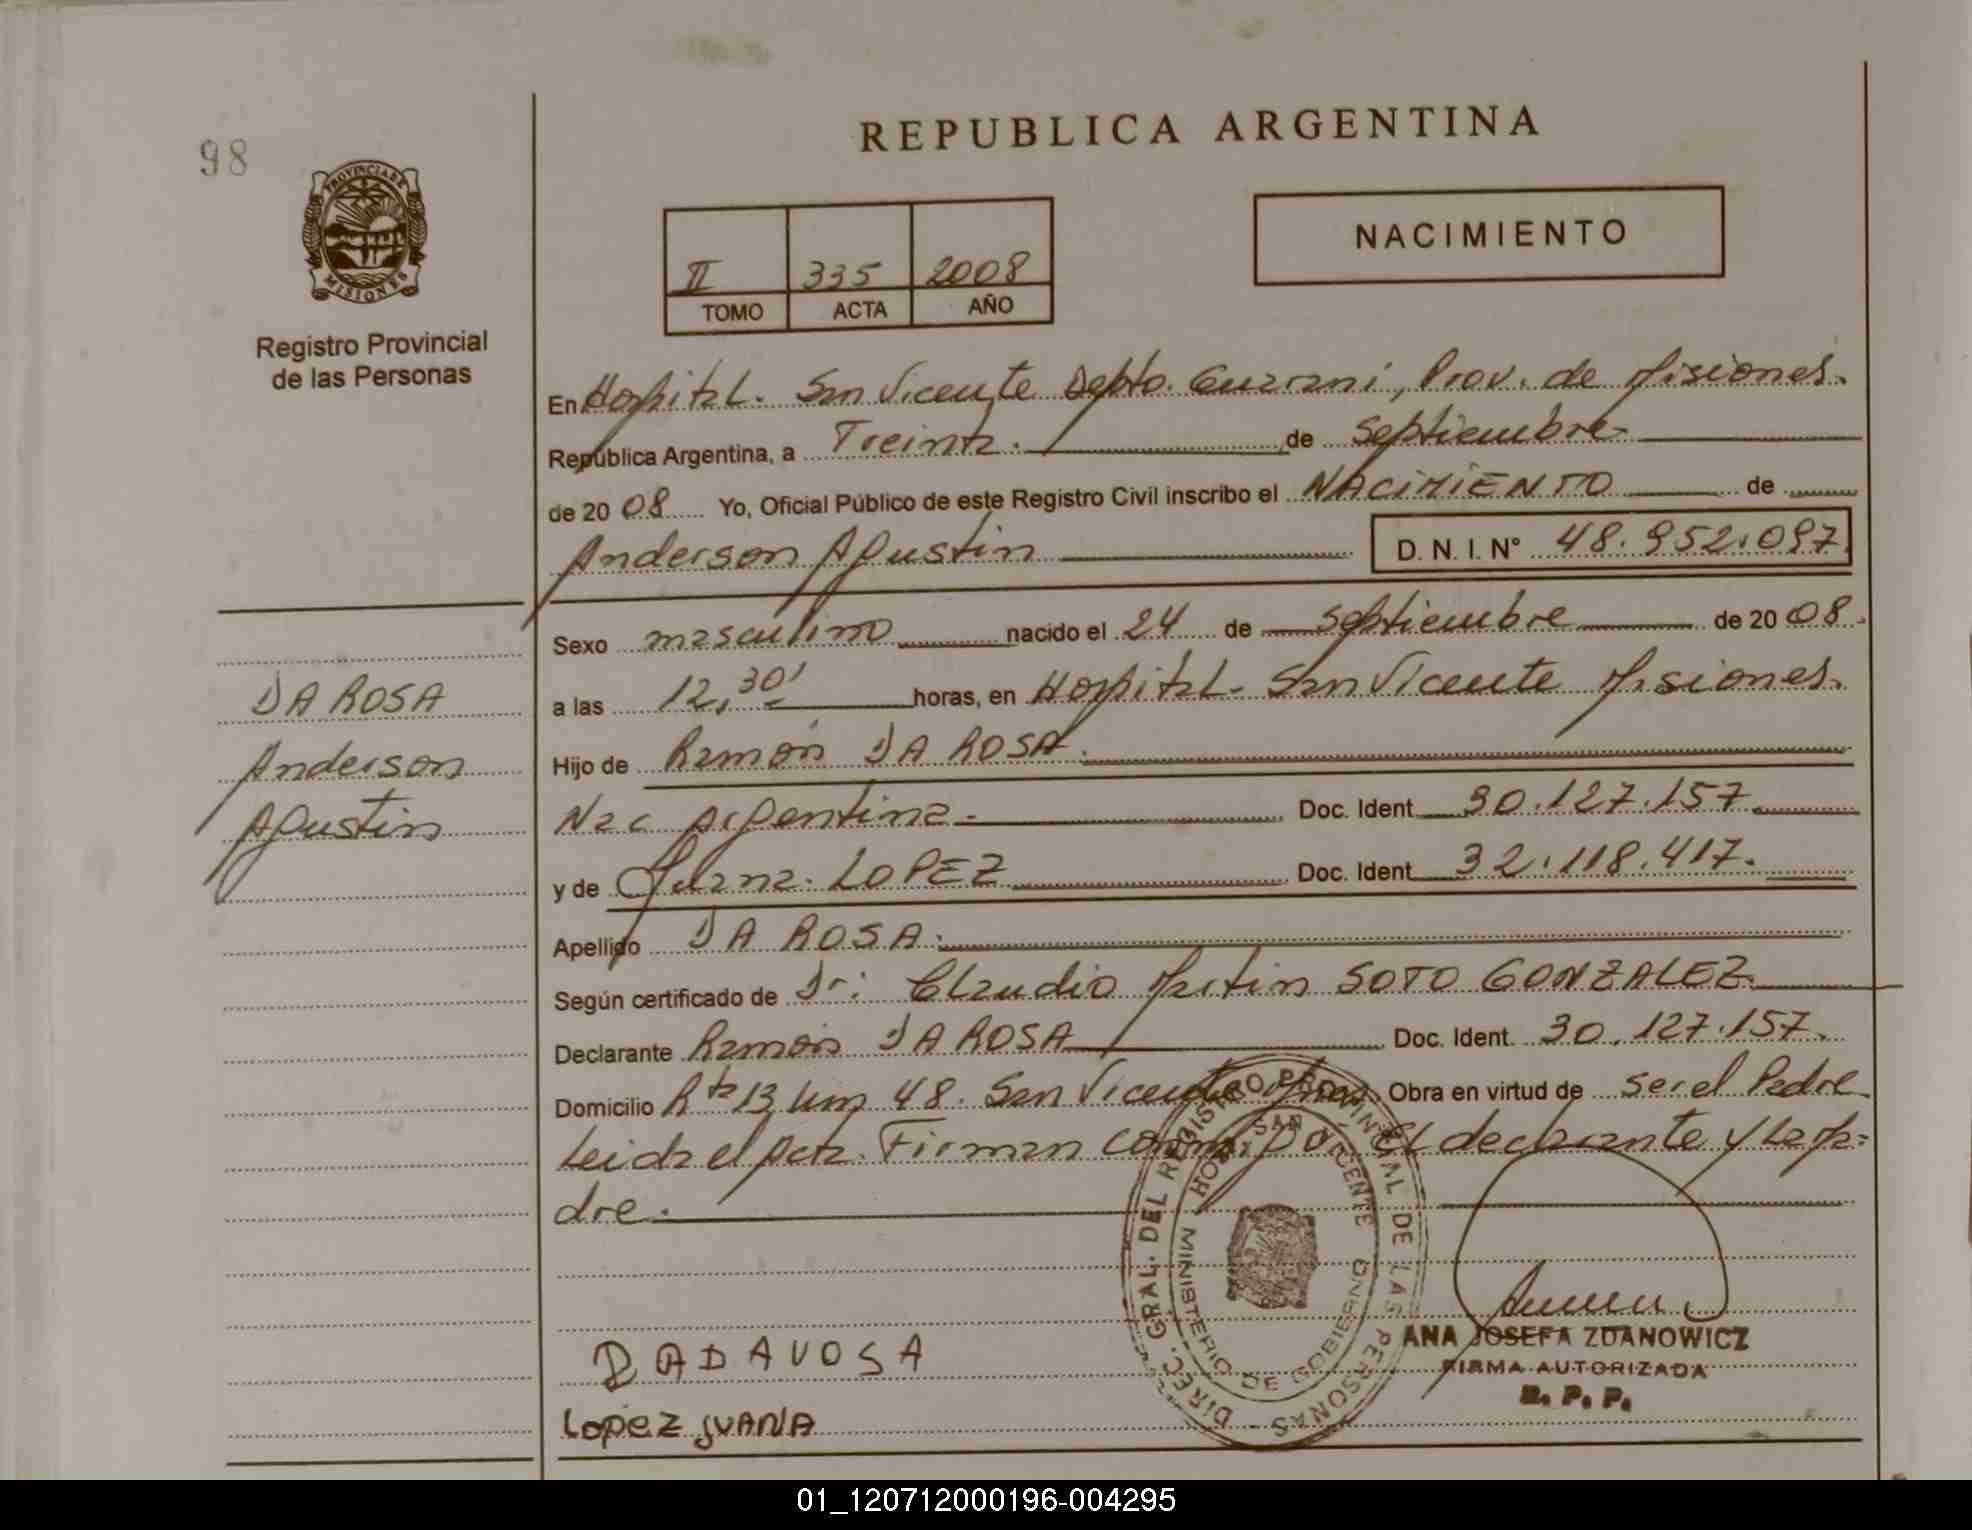 98
PROVINCIA DE
MISIONES
Registro Provincial
de las Personas
REPUBLICA ARGENTINA
II 335 2008
TOMO ACTA AÑO
NACIMIENTO
En Hospital. San Vicente Depto. Guarani, Prov. de Misiones.
República Argentina, a Treinta. de Septiembre
de 20 08 Yo, Oficial Público de este Registro Civil inscribo el NACIMIENTO de
Anderson Agustin D. N. I. N° 48.952.097
Sexo masculino nacido el 24 de Septiembre de 20 08.
a las 12,30' horas, en Hospital- San Vicente Misiones.
Hijo de Ramón DA ROSA.
Nac Argentina. Doc. Ident 30.127.157
y de Juana. LOPEZ Doc. Ident 32.118.417.
Apellido DA ROSA.
Según certificado de Dr: Claudio Martin SOTO GONZALEZ
Declarante Ramón DA ROSA Doc. Ident. 30.127.157.
Domicilio Rta 13 km 48. San Vicente Mnes. Obra en virtud de ser el Padre
Leida el Acta. Firman conmigo El declarante y La Ma=
dre.
DA ROSA
Anderson
Agustin
DIREC. GRAL. DEL REGISTRO PROVINCIAL DE LAS PERSONAS
HOSP. SAN VICENTE
MINISTERIO DE GOBIERNO
ANA JOSEFA ZDANOWICZ
FIRMA AUTORIZADA
R. P. P.
DADAVOSA
Lopez JUANA
01_120712000196-004295